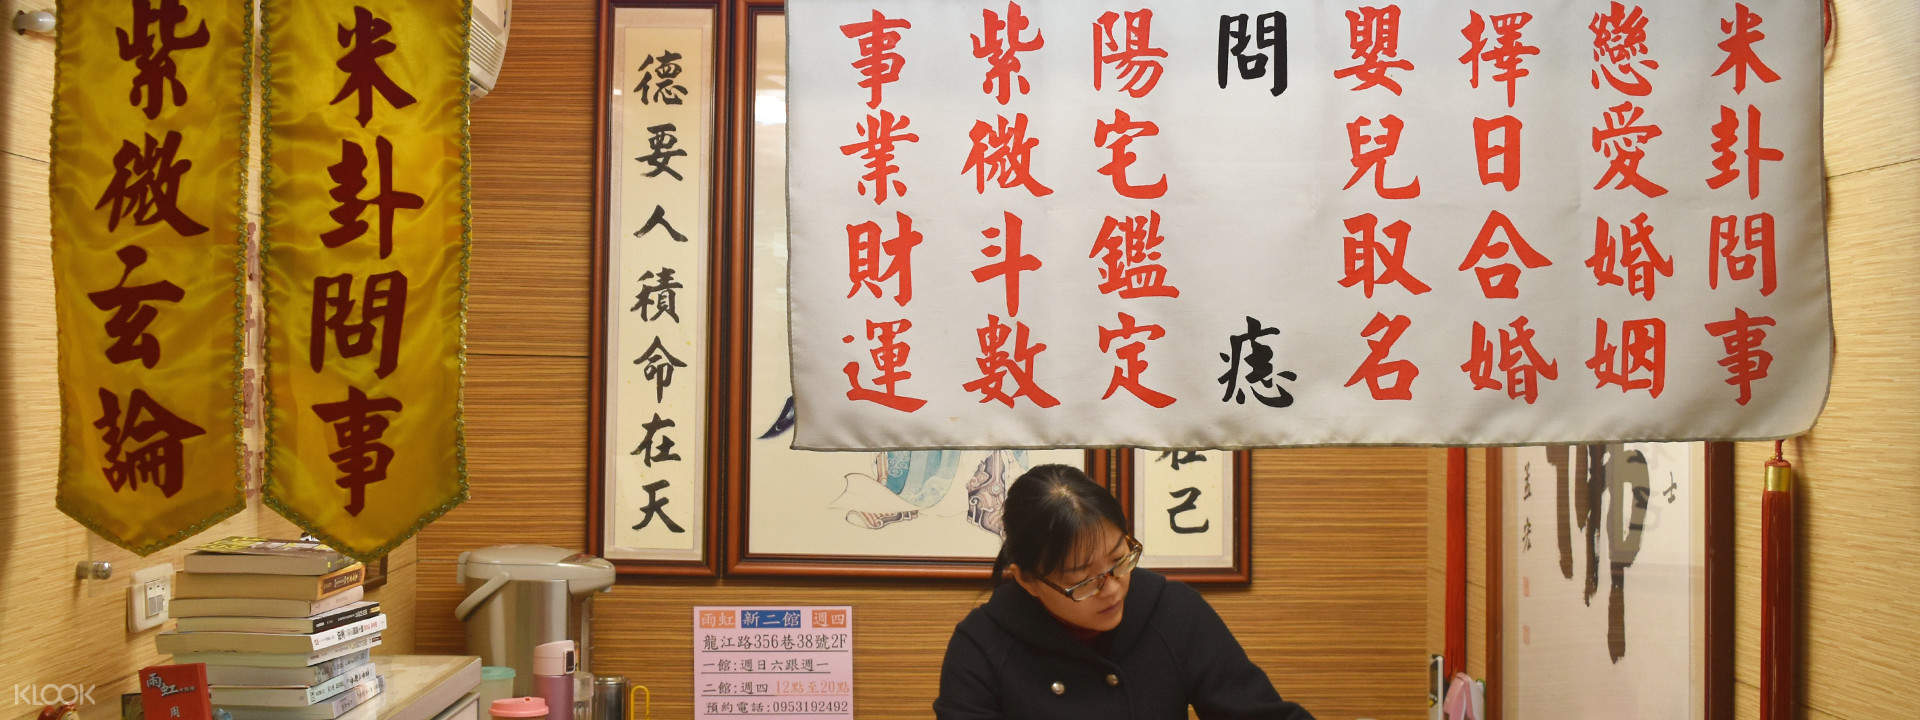 紫微玄論
米卦問事
德要人積命在天
在己
米卦問事
戀愛婚姻
擇日合婚
嬰兒取名
問 痣
陽宅鑑定
紫微斗數
事業財運
雨虹 新二館 週四
龍江路356巷38號2F
一館:週日六跟週一
二館:週四 12點至20點
預約電話:0953192492
雨虹
周
KLOOK